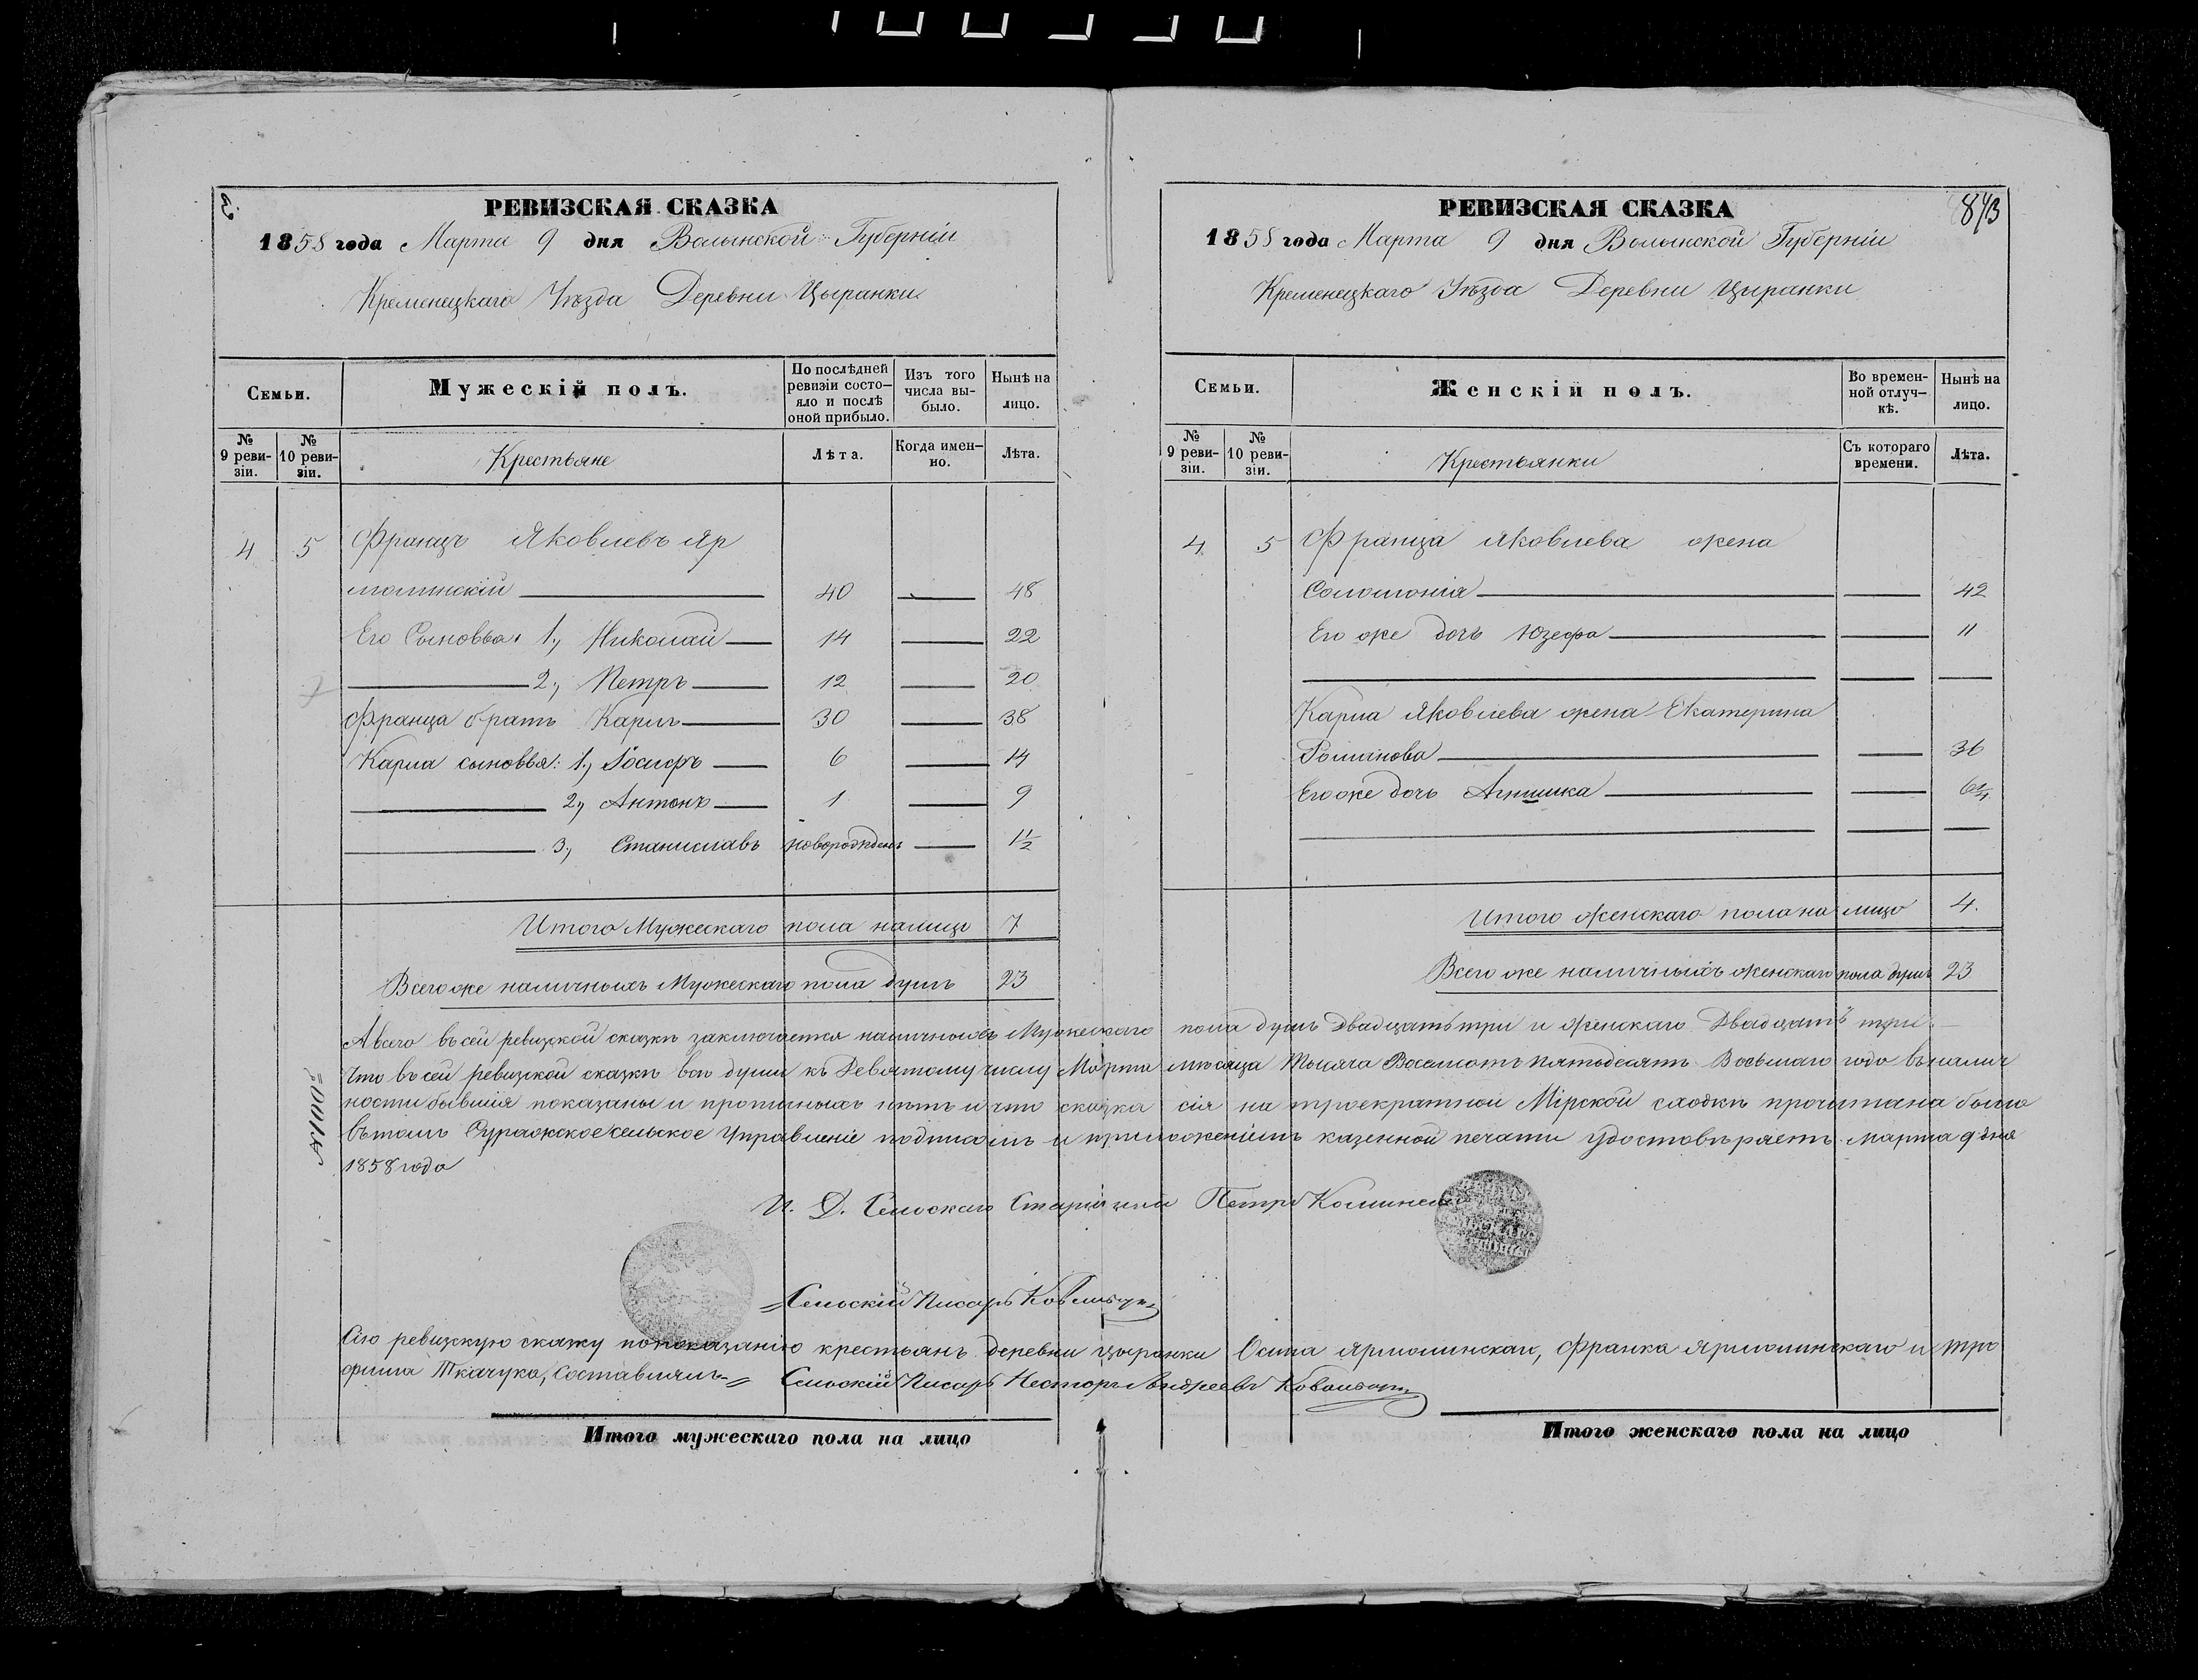 3.
РЕВИЗСКАЯ СКАЗКА
1858 года Марта 9 дня Волынской Губерніи
Кременецкаго Уѣзда Деревни Цыранки
Семьи.
Мужескій полъ.
По послѣдней ревизіи состояло и послѣ оной прибыло.
Изъ того числа выбыло.
Нынѣ на лицо.
№ 9 ревизіи.
№ 10 ревизіи.
Крестьяне
Лѣта.
Когда именно.
Лѣта.
4 5 Францъ Яковлевъ Яр
молинскій 40 48
Его Сыновья: 1, Николай 14 22
2, Петръ 12 20
Франца братъ Карлъ 30 38
Карла сыновья: 1, Іосифъ 6 14
2, Антонъ 1 9
3, Станиславъ новорожденъ 1½
Итого Мужескаго пола налицо 7
Всего же наличныхъ Мужескаго пола душъ 23
8413
РЕВИЗСКАЯ СКАЗКА
1858 года Марта 9 дня Волынской Губерніи
Кременецкаго Уѣзда Деревни Цыранки
Семьи.
Женскій полъ.
Во временной отлучкѣ.
Нынѣ на лицо.
№ 9 ревизіи.
№ 10 ревизіи.
Крестьянки
Съ котораго времени.
Лѣта.
4 5 Франца Яковлева жена
Соломонія 42
Его же дочь Юзефа 11
Карла Яковлева жена Екатерина
Романова 36
Его же дочь Агнишка 6¼
Итого женскаго пола на лицо 4.
Всего же наличныхъ женскаго пола душъ 23
А всего въ сей ревизской сказкѣ заключается наличныхъ Мужескаго пола душъ двадцать три и женскаго Двадцать три.
Что въ сей ревизской сказкѣ всѣ души къ Девятому числу Марта мѣсяца Тысяча Восемсотъ пятьдесятъ Восьмаго года въ налич
ности бывшія показаны и прописныхъ нѣтъ и что сказка сія на троекратной Мірской сходкѣ прочитана была
въ томъ Суражское сельское Управленіе подписомъ и приложеніемъ казенной печати удостовѣряетъ. Марта 9 дня
1858 года
И. Д. Сельскаго Старшины Петръ
Сельскій Писарь Ковальчук
Сію ревизскую скажу по показанію крестьянъ деревни Цыранки Осипа Ярмолинскаго, Франка Ярмолинскаго и Тро
фима Ткачука, Составлялъ Сельскій Писарь Несторъ Андреевъ Ковальчук
Итого мужескаго пола на лицо
Итого женскаго пола на лицо